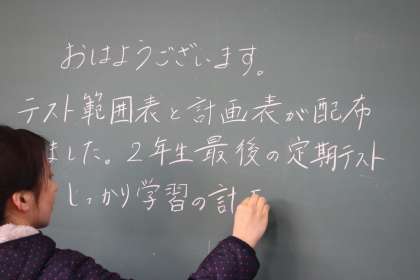 おはようございます。
テスト範囲表と計画表が配布
ました。2年生最後の定期テスト
しっかり学習の計